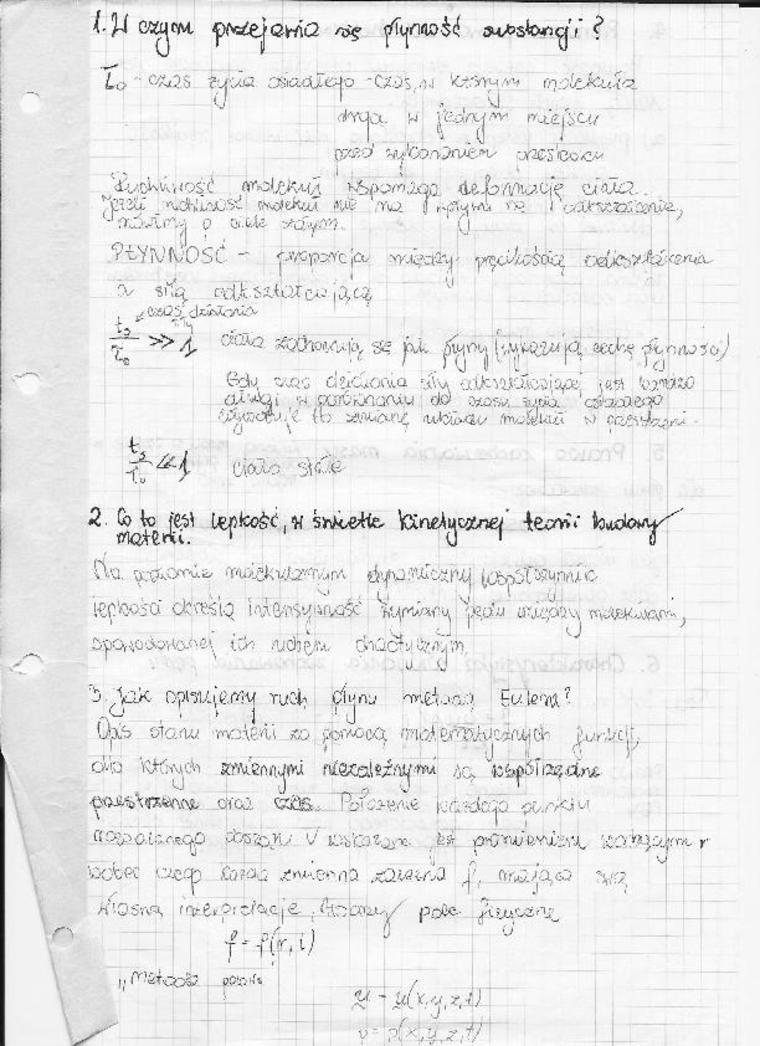 1. W czym przejawia się płynność substancji?
τ₀ - czas życia osiadłego - czas, w którym molekuła
drga w jednym miejscu
przed wykonaniem przeskoku
Ruchliwość molekuł wspomaga deformację ciała.
Jeżeli ruchliwość molekuł nie ma wpływu na odkształcenie,
mówimy o ciele stałym.
PŁYNNOŚĆ - proporcja między prędkością odkształcenia
a siłą odkształcającą
czas działania siły
t_s/τ₀ >> 1 ciała zachowują się jak płyny (wykazują cechę płynności)
Gdy czas działania siły odkształcającej jest bardzo
długi w porównaniu do czasu życia osiadłego
to zmianę układu molekuł w przestrzeni.
t_s/τ₀ << 1 ciała stałe
2. Co to jest lepkość, w świetle kinetycznej teorii budowy
materii.
Na poziomie molekularnym dynamiczny współczynnik
lepkości określa intensywność wymiany pędu między molekułami,
spowodowanej ich ruchem chaotycznym.
3. Jak opisujemy ruch płynu metodą Eulera?
Opis stanu materii za pomocą matematycznych funkcji,
dla których zmiennymi niezależnymi są współrzędne
przestrzenne oraz czas. Położenie każdego punktu
rozważanego obszaru V wskazane jest promieniem wodzącym r
wobec czego każda zmienna zależna f, mająca swą
własną interpretację, tworzy pole fizyczne
f = f(r, t)
"Metoda
u = u(x, y, z, t)
p = p(x, y, z, t)